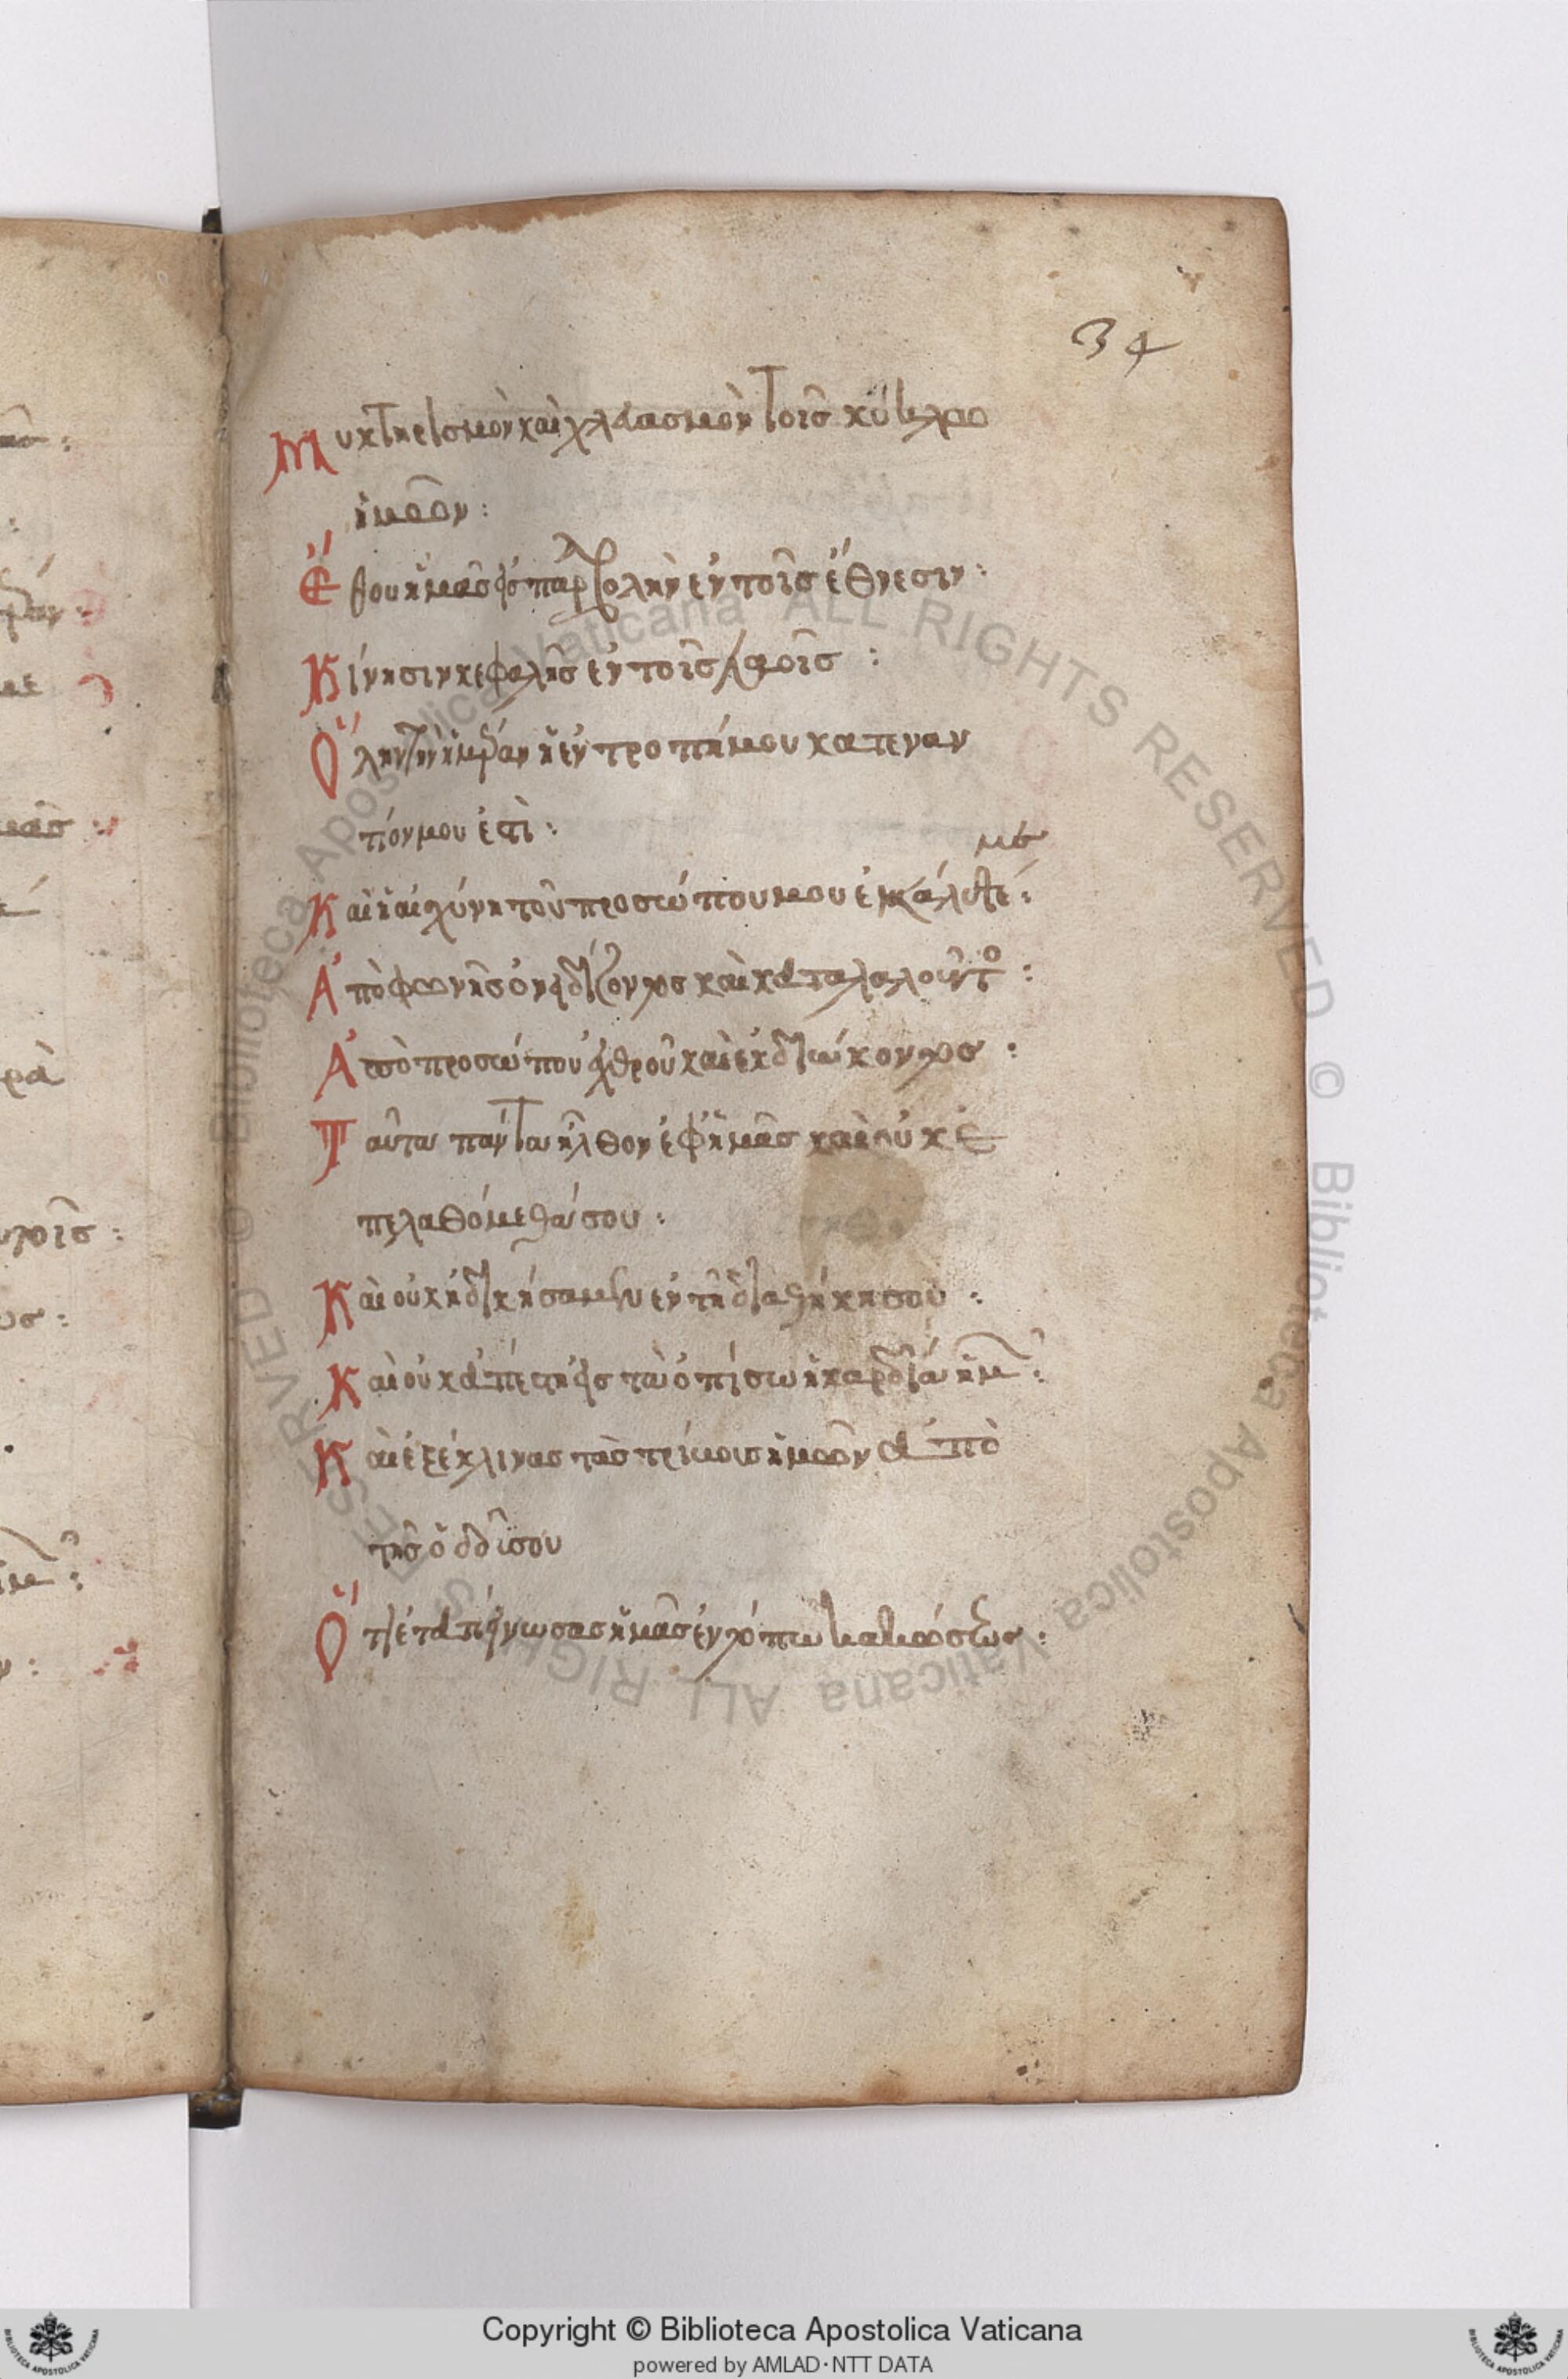 34
Μυκτηρισμὸν καὶ χλευασμὸν τοῖς κύκλω
ἡμῶν :
Ἔθου ἡμᾶς εἰς παραβολὴν ἐν τοῖς ἔθνεσιν :
Κίνησιν κεφαλῆς ἐν τοῖς λαοῖς :
Ὅλην τὴν ἡμέραν ἡ ἐντροπή μου κατεναν
τίον μου ἐστὶ :
Καὶ ἡ αἰσχύνη τοῦ προσώπου μου ἐκάλυψέ :
με
Ἀπὸ φωνῆς ὀνειδίζοντος καὶ καταλαλοῦντο :
Ἀπὸ προσώπου ἐχθροῦ καὶ ἐκδιώκοντος :
Ταῦτα πάντα ἦλθον ἐφ ἡμᾶς καὶ οὐκ ἐ
πελαθόμεθά σου :
Καὶ οὐκ ἠδικήσαμεν ἐν τῆ διαθήκη σου :
Καὶ οὐκ ἀπέστη εἰς τὰ ὀπίσω ἡ καρδία ἡμ :
Καὶ ἐξέκλινας τὰς τρίβους ἡμῶν ἀπὸ
τῆς ὁδοῦ σου
Ὅτι ἐταπείνωσας ἡμᾶς ἐν τόπω κακώσεως :
Copyright © Biblioteca Apostolica Vaticana
powered by AMLAD·NTT DATA